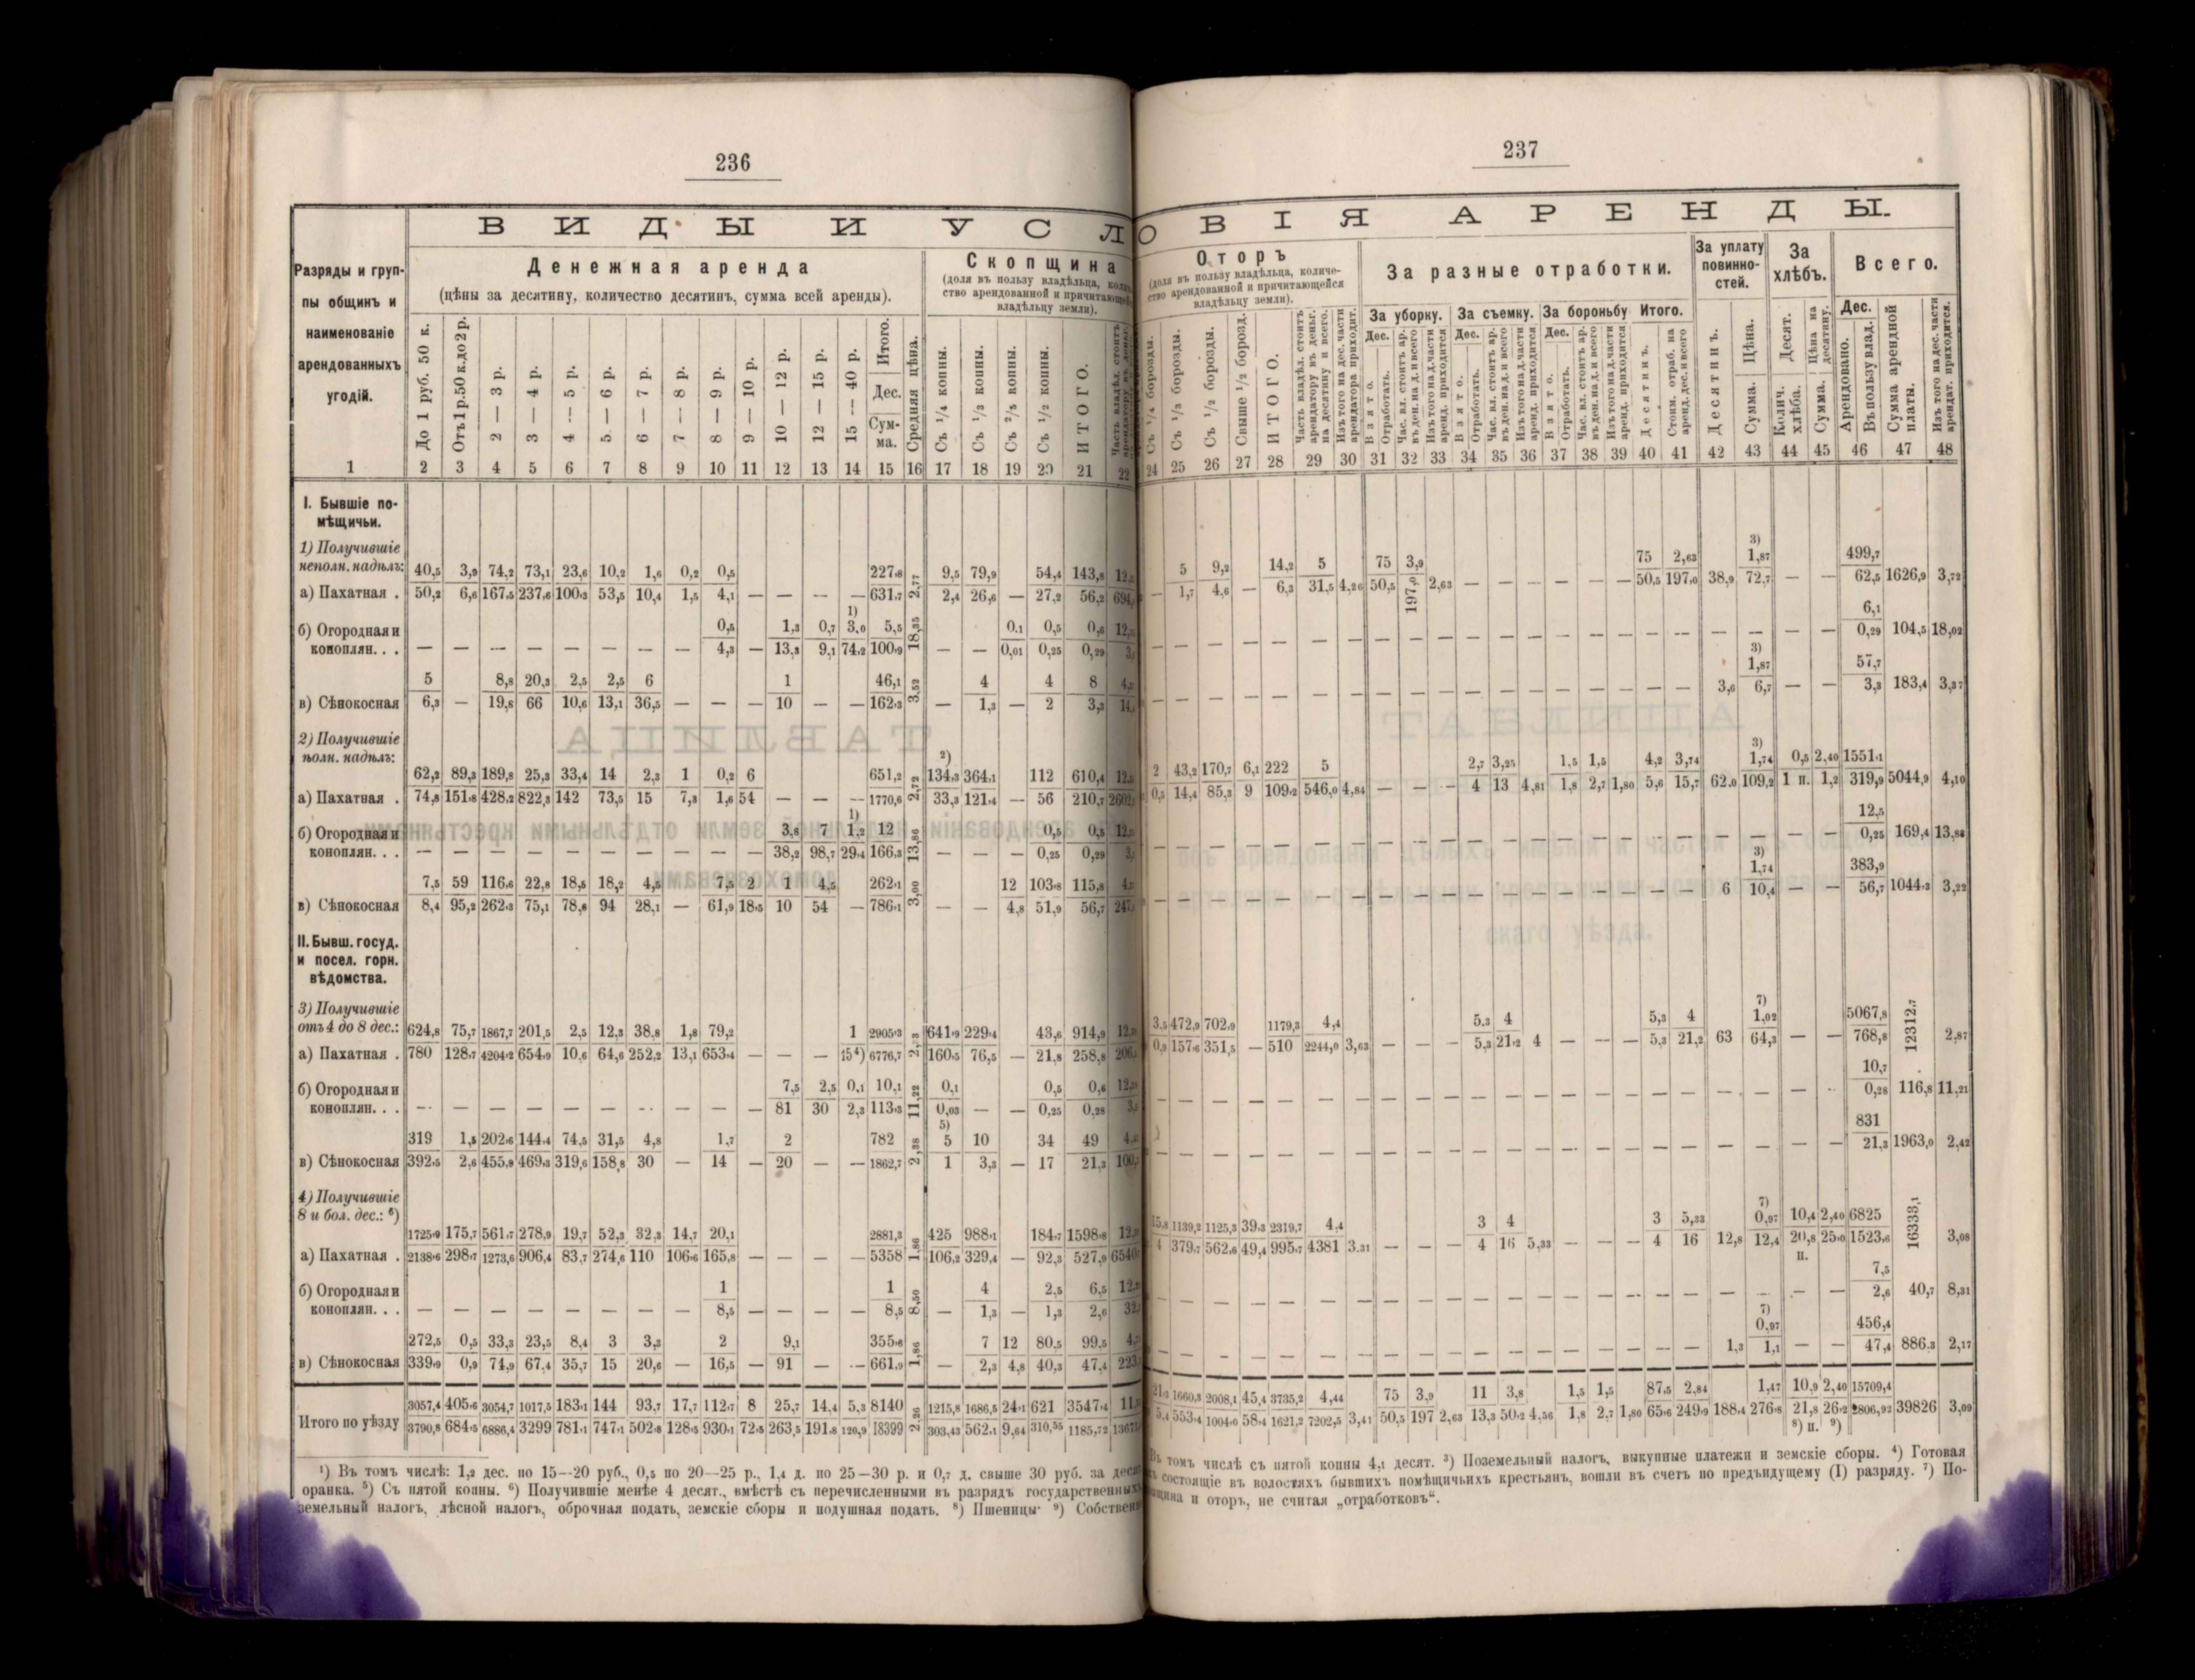 236
ВИДЫ И УСЛ
Разряды и груп-
пы общинъ и
наименованіе
арендованныхъ
угодій.
Денежная аренда
(цѣны за десятину, количество десятинъ, сумма всей аренды).
Скопщина
(доля въ пользу владѣльца,
ство арендованной и
владѣльцу земли).
До 1 руб. 50 к.
Отъ 1 р. 50 к. до 2 р.
2 — 3 р.
3 — 4 р.
4 — 5 р.
5 — 6 р.
6 — 7 р.
7 — 8 р.
8 — 9 р.
9 — 10 р.
10 — 12 р.
12 — 15 р.
15 — 40 р.
Итого.
Дес.
Сум-
ма.
Средняя цѣна.
Съ 1/4 копны.
Съ 1/3 копны.
Съ 2/5 копны.
Съ 1/2 копны.
ИТОГО.
1 2 3 4 5 6 7 8 9 10 11 12 13 14 15 16 17 18 19 20 21 22
I. Бывшіе по-
мѣщичьи.
1) Получившіе
неполн. надѣлъ:
40,5 3,9 74,2 73,1 23,6 10,2 1,6 0,2 0,5 227,8 2,77 9,5 79,9 54,4 143,8
а) Пахатная . 50,2 6,6 167,5 237,6 100,3 53,5 10,4 1,5 4,1 — — — — 631,7 2,4 26,6 — 27,2 56,2
1)
б) Огородная и 0,5 1,3 0,7 3,0 5,5 18,35 0,1 0,5 0,6
коноплян. . . — — — — — — — — 4,3 — 13,3 9,1 74,2 100,9 — — 0,01 0,25 0,29
5 8,8 20,3 2,5 2,5 6 1 46,1 3,52 4 4 8
в) Сѣнокосная 6,3 — 19,8 66 10,6 13,1 36,5 — — — 10 — — 162,3 — 1,3 — 2 3,3
2) Получившіе
полн. надѣлъ:
2)
62,2 89,3 189,8 25,3 33,4 14 2,3 1 0,2 6 651,2 2,72 134,3 364,1 112 610,4
а) Пахатная . 74,8 151,8 428,2 822,3 142 73,5 15 7,3 1,6 54 — — — 1770,6 33,3 121,4 — 56 210,7
1)
б) Огородная и 3,8 7 1,2 12 13,86 0,5 0,5
коноплян. . . — — — — — — — — — — 38,2 98,7 29,4 166,3 — — — 0,25 0,29
7,5 59 116,6 22,8 18,5 18,2 4,5 7,5 2 1 4,5 262,1 3,00 12 103,8 115,8
в) Сѣнокосная 8,4 95,2 262,3 75,1 78,8 94 28,1 — 61,9 18,5 10 54 — 786,1 — — 4,8 51,9 56,7
II. Бывш. госуд.
и посел. горн.
вѣдомства.
3) Получившіе
отъ 4 до 8 дес.: 624,8 75,7 1867,7 201,5 2,5 12,3 38,8 1,8 79,2 1 2905,3 641,9 229,4 43,6 914,9
а) Пахатная . 780 128,7 4204,2 654,9 10,6 64,6 252,2 13,1 653,4 — — — 15 4) 6776,7 160,5 76,5 — 21,8 258,8
б) Огородная и 7,5 2,5 0,1 10,1 11,22 0,1 0,5 0,6
коноплян. . . — — — — — — — — — — 81 30 2,3 113,3 0,03 — — 0,25 0,28
5)
319 1,5 202,6 144,4 74,5 31,5 4,8 1,7 2 782 2,38 5 10 34 49
в) Сѣнокосная 392,5 2,6 455,9 469,3 319,6 158,8 30 — 14 — 20 — — 1862,7 1 3,3 — 17 21,3
4) Получившіе
8 и бол. дес.: 6)
1725,9 175,7 561,7 278,9 19,7 52,3 32,3 14,7 20,1 2881,3 1,86 425 988,1 184,7 1598,8
а) Пахатная . 2138,6 298,7 1273,6 906,4 83,7 274,6 110 106,6 165,8 — — — — 5358 106,2 329,4 — 92,3 527,9
б) Огородная и 1 1 8,50 4 2,5 6,5
коноплян. . . — — — — — — — — 8,5 — — — — 8,5 — 1,3 — 1,3 2,6
272,5 0,5 33,3 23,5 8,4 3 3,3 2 9,1 355,6 1,86 7 12 80,5 99,5
в) Сѣнокосная 339,9 0,9 74,9 67,4 35,7 15 20,6 — 16,5 — 91 — — 661,9 — 2,3 4,8 40,3 47,4
3057,4 405,6 3054,7 1017,5 183,1 144 93,7 17,7 112,7 8 25,7 14,4 5,3 8140 2,26 1215,8 1686,5 24,1 621 3547,4
Итого по уѣзду 3790,8 684,5 6886,4 3299 781,1 747,1 502,8 128,5 930,1 72,5 263,5 191,8 120,9 18399 303,43 562,1 9,64 310,55 1185,72
1) Въ томъ числѣ: 1,2 дес. по 15—20 руб., 0,5 по 20—25 р., 1,4 д. по 25—30 р. и 0,7 д. свыше 30 руб. за
оранка. 5) Съ пятой копны. 6) Получившіе менѣе 4 десят., вмѣстѣ съ перечисленными въ разрядъ государственныхъ
земельный налогъ, лѣсной налогъ, оброчная подать, земскіе сборы и подушная подать. 8) Пшеницы· 9)
237
ОВІЯ АРЕНДЫ.
Оторъ
(доля въ пользу владѣльца, количе-
ство арендованной и причитающейся
владѣльцу земли).
За разные отработки.
За уплату
повинно-
стей.
За
хлѣбъ.
Всего.
За уборку. За съемку. За бороньбу Итого.
Съ 1/4 борозды.
Съ 1/3 борозды.
Съ 1/2 борозды.
Свыше 1/2 борозд.
ИТОГО.
Часть владѣл. стоитъ
арендатору въ деньг.
на десятину и всего.
Изъ того на дес. части
арендатора приходит.
Дес.
Взято.
Отработать.
Час. вл. стоитъ ар.
въ ден. на д. и всего
Изъ того на д. части
аренд. приходится
Дес.
Взято.
Отработать.
Час. вл. стоитъ ар.
въ ден. на д. и всего
Изъ того на д. части
аренд. приходится
Дес.
Взято.
Отработать.
Час. вл. стоитъ ар.
въ ден. на д. и всего
Изъ того на д. части
аренд. приходится
Десятинъ.
Стоим. отраб. на
аренд. дес. и всего
Десятинъ.
Цѣна.
Сумма.
Десят.
Колич.
хлѣба.
Цѣна на
десятину.
Сумма.
Дес.
Арендовано.
Въ пользу влад.
Сумма арендной
платы.
Изъ того на дес. части
арендат. приходится.
24 25 26 27 28 29 30 31 32 33 34 35 36 37 38 39 40 41 42 43 44 45 46 47 48
3)
5 9,2 14,2 5 75 3,9 75 2,63 1,87 499,7
— 1,7 4,6 — 6,3 31,5 4,26 50,5 197,0 2,63 — — — — — — 50,5 197,0 38,9 72,7 — — 62,5 1626,9 3,72
6,1
— — — — — — — — — — — — — — — — — — — — — — 0,29 104,5 18,02
3)
1,87 57,7
— — — — — — — — — — — — — — — — — — 3,6 6,7 — — 3,3 183,4 3,37
3)
2 43,2 170,7 6,1 222 5 2,7 3,25 1,5 1,5 4,2 3,74 1,74 0,5 2,40 1551,1
0,5 14,4 85,3 9 109,2 546,0 4,84 — — — 4 13 4,81 1,8 2,7 1,80 5,6 15,7 62,0 109,2 1 п. 1,2 319,9 5044,9 4,10
12,5
— — — — — — — — — — — — — — — — — — — — — — 0,25 169,4 13,88
3)
1,74 383,9
— — — — — — — — — — — — — — — — — — 6 10,4 — — 56,7 1044,3 3,22
7)
3,5 472,9 702,9 1179,3 4,4 5,3 4 5,3 4 1,02 5067,8
0,9 157,6 351,5 — 510 2244,0 3,63 — — — 5,3 21,2 4 — — — 5,3 21,2 63 64,3 — — 768,8 12312,7 2,87
10,7
— — — — — — — — — — — — — — — — — — — — — — 0,28 116,8 11,21
831
— — — — — — — — — — — — — — — — — — — — — — 21,3 1963,0 2,42
7)
15,8 1139,2 1125,3 39,3 2319,7 4,4 3 4 3 5,33 0,97 10,4 2,40 6825
4 379,7 562,6 49,4 995,7 4381 3,31 — — — 4 16 5,33 — — — 4 16 12,8 12,4 20,8 25,0 1523,6 16333,1 3,08
п.
7,5
— — — — — — — — — — — — — — — — — — — — — — 2,6 40,7 8,31
7)
0,97 456,4
— — — — — — — — — — — — — — — — — — 1,3 1,1 — — 47,4 886,3 2,17
21,3 1660,3 2008,1 45,4 3735,2 4,44 75 3,9 11 3,8 1,5 1,5 87,5 2,84 1,47 10,9 2,40 15709,4
5,4 553,4 1004,0 58,4 1621,2 7202,5 3,41 50,5 197 2,63 13,3 50,2 4,56 1,8 2,7 1,80 65,6 249,9 188,4 276,8 21,8 26,2 2806,92 39826 3,09
8) п. 9)
Въ томъ числѣ съ пятой копны 4,1 десят. 3) Поземельный налогъ, выкупные платежи и земскіе сборы. 4) Готовая
состоящіе въ волостяхъ бывшихъ помѣщичьихъ крестьянъ, вошли въ счетъ по предъидущему (I) разряду. 7) По-
и оторъ, не считая „отработковъ“.